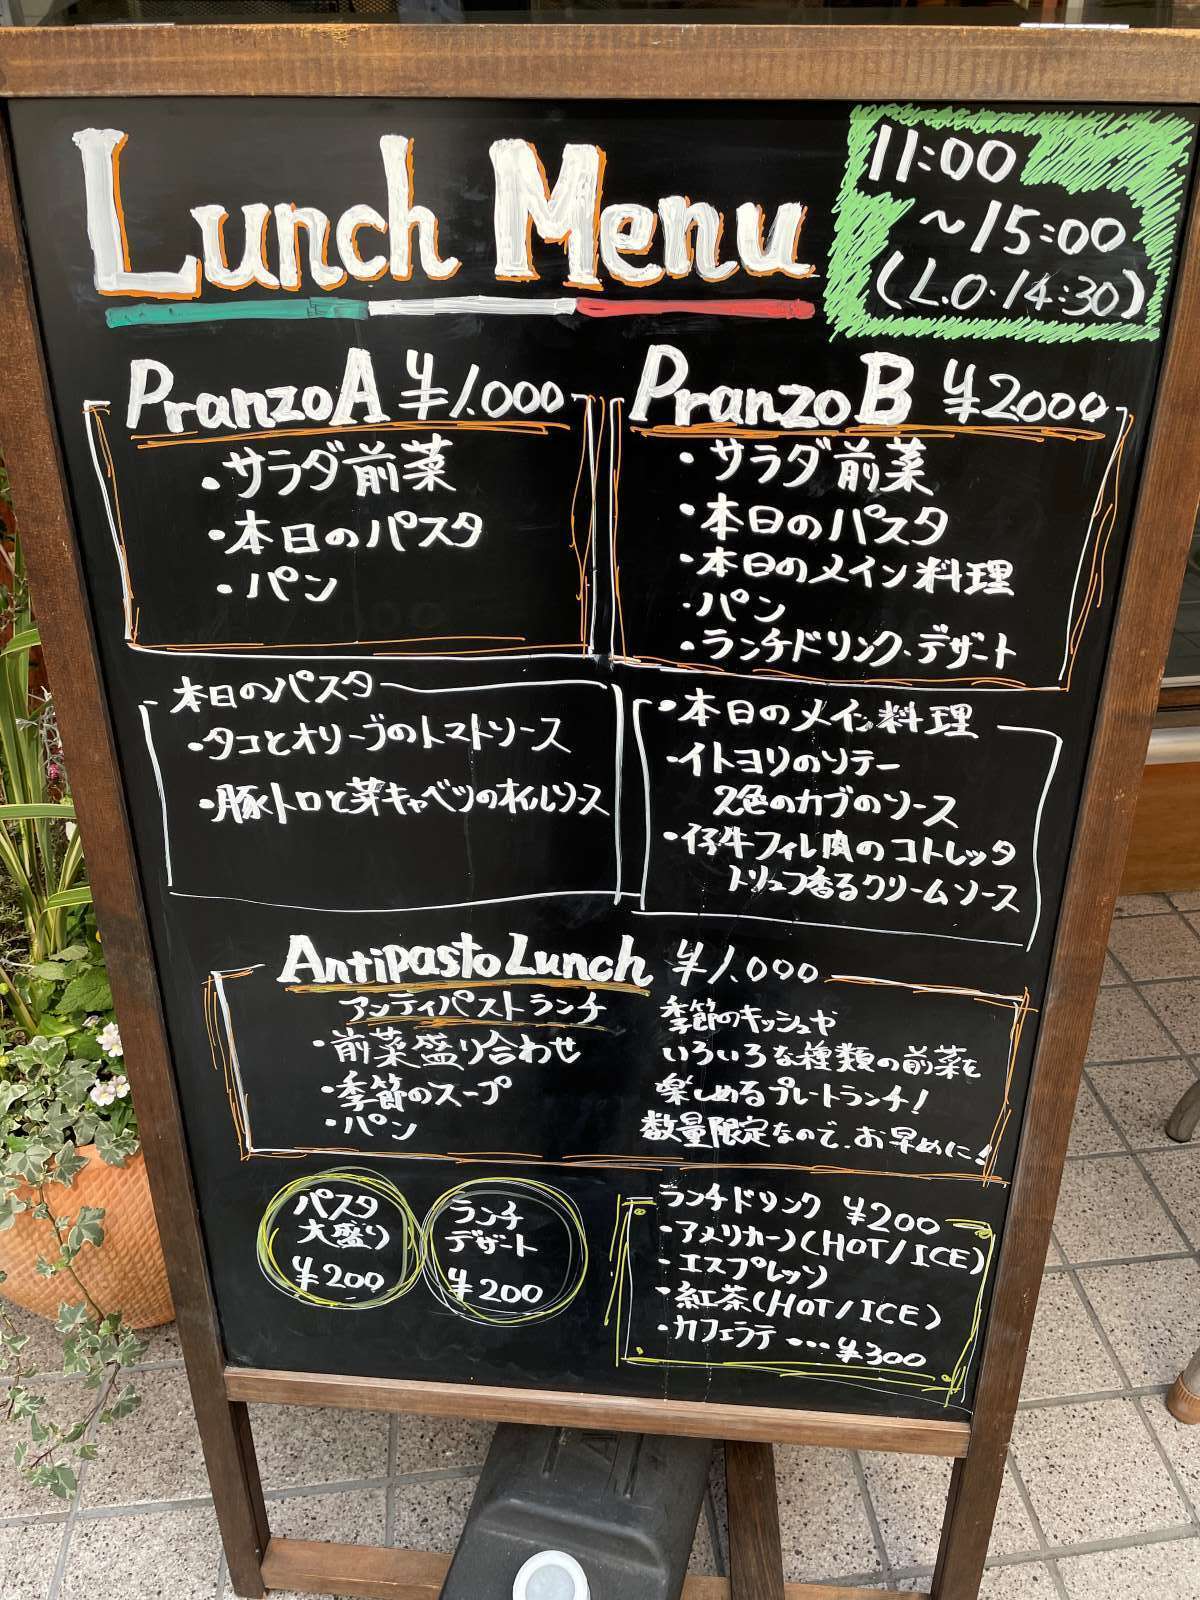 Lunch Menu
11:00
~15:00
(L.O.14:30)
Pranzo A ¥1.000
・サラダ前菜
・本日のパスタ
・パン
Pranzo B ¥2.000
・サラダ前菜
・本日のパスタ
・本日のメイン料理
・パン
・ランチドリンク・デザート
本日のパスタ
・タコとオリーブのトマトソース
・豚トロと芽キャベツのオイルソース
・本日のメイン料理
・イトヨリのソテー
2色のカブのソース
・仔牛フィレ肉のコトレッタ
トリュフ香るクリームソース
Antipasto Lunch ¥1.000
アンティパストランチ
・前菜盛り合わせ
・季節のスープ
・パン
季節のキッシュや
いろいろな種類の前菜を
楽しめるプレートランチ!
数量限定なので、お早めに!
パスタ
大盛り
¥200
ランチ
デザート
¥200
ランチドリンク ¥200
・アメリカーノ(HOT/ICE)
・エスプレッソ
・紅茶(HOT/ICE)
・カフェラテ …¥300